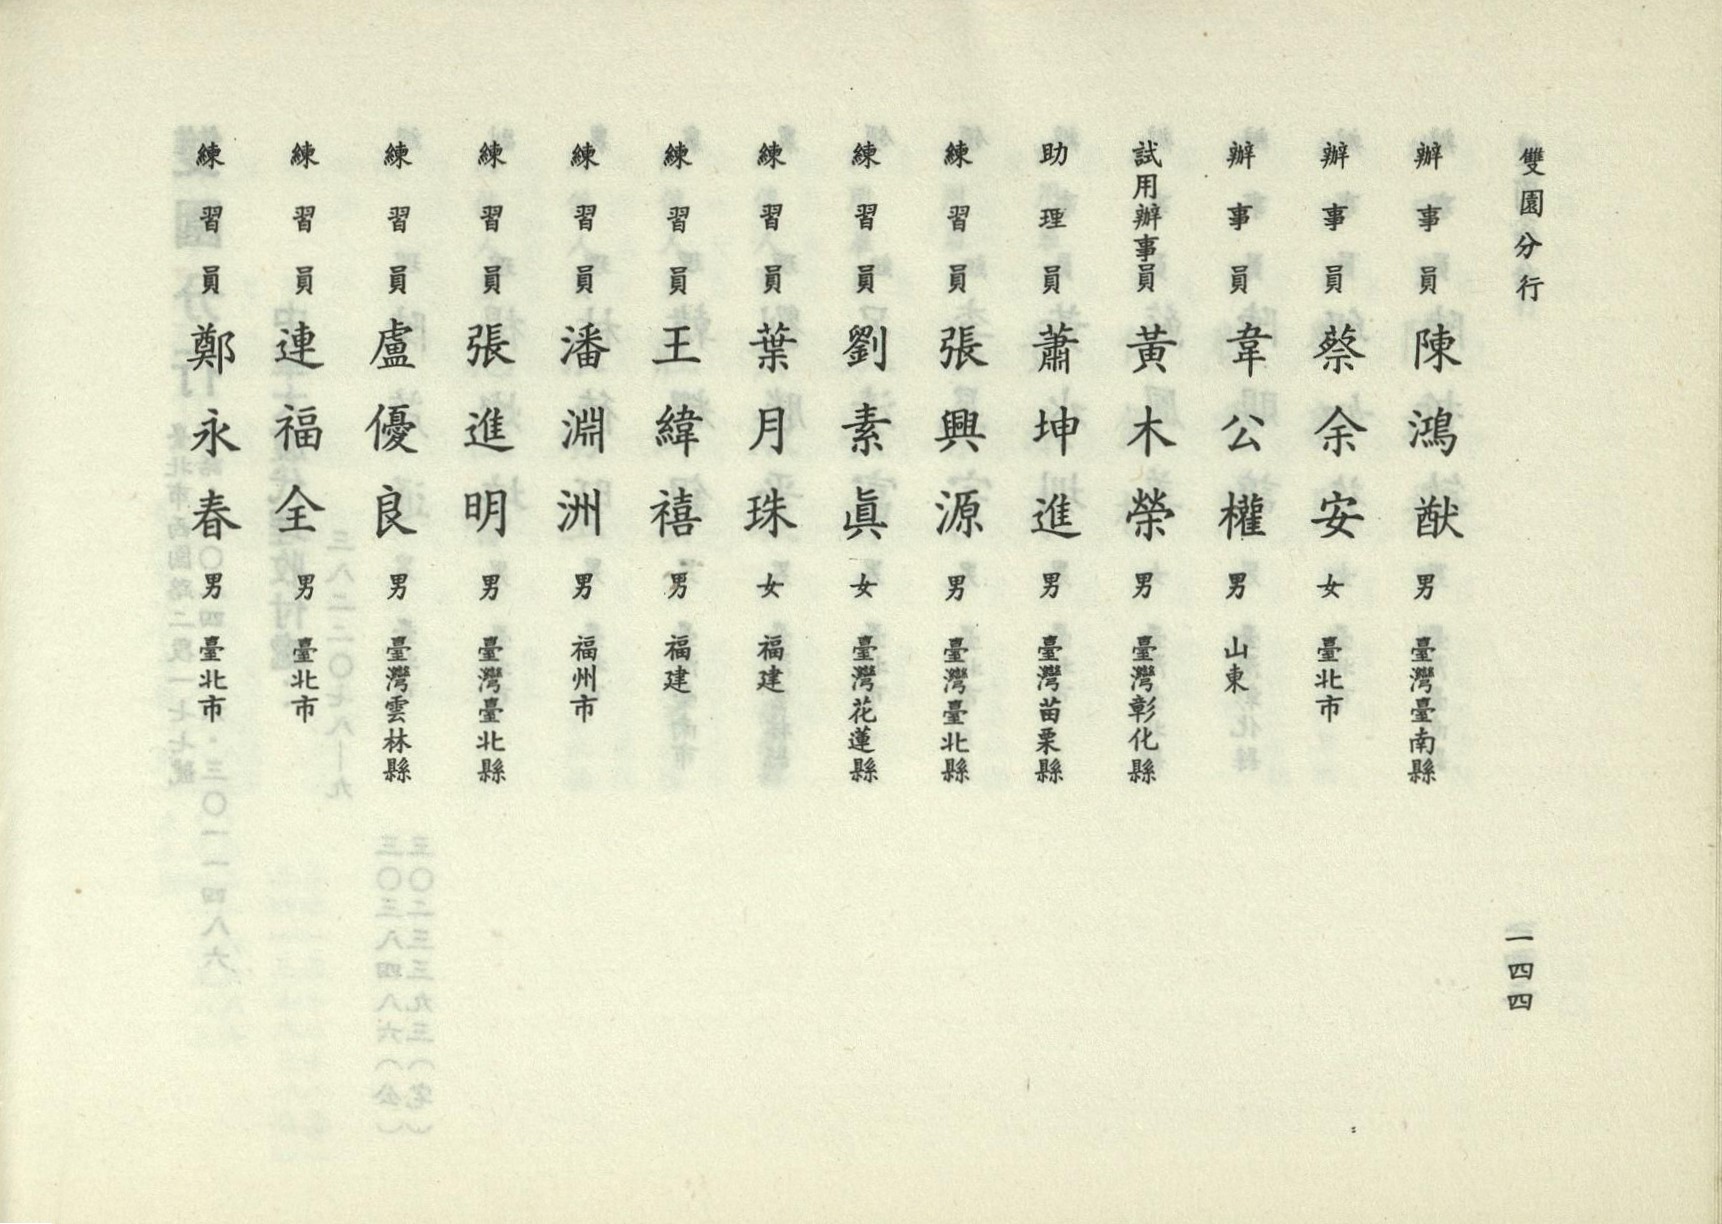 雙園分行
辦事員 陳鴻猷 男 臺灣臺南縣
辦事員 蔡余安 女 臺北市
辦事員 韋公權 男 山東
試用辦事員 黃木榮 男 臺灣彰化縣
助理員 蕭坤進 男 臺灣苗栗縣
練習員 張興源 男 臺灣臺北縣
練習員 劉素眞 女 臺灣花蓮縣
練習員 葉月珠 女 福建
練習員 王緯禧 男 福建
練習員 潘淵洲 男 福州市
練習員 張進明 男 臺灣臺北縣
練習員 盧優良 男 臺灣雲林縣
練習員 連福全 男 臺北市
練習員 鄭永春 男 臺北市
一四四